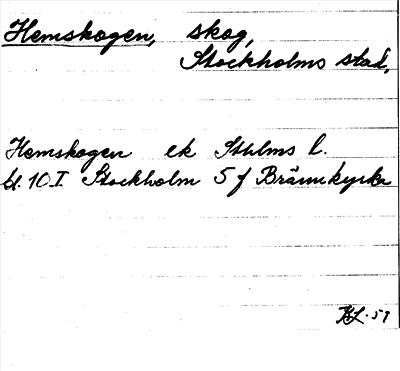 Hemskogen, skog,
Stockholms stad,
Hemskogen ek Sthlms l.
bl. 10I Stockholm 5 f Brännkyrka
HL. 57